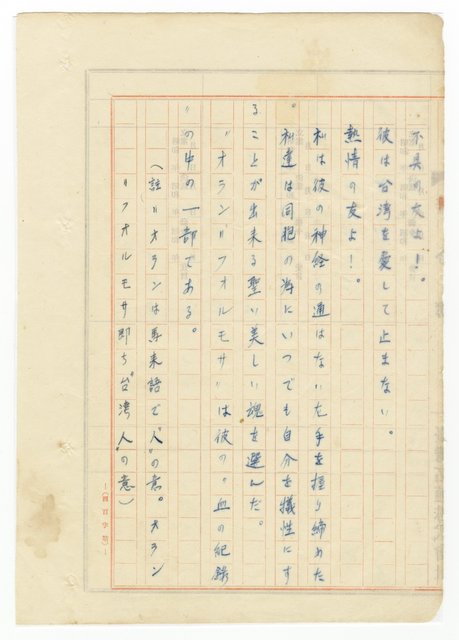 不具の友よ！。
彼は台湾を愛して止まない。
熱情の友よ！。
私は彼の神経の通はないた手を握り締めた
。私達は同胞の為にいつでも自分を犠牲にす
ることが出来る聖い美しい魂を選んだ。
〃オラン〃フオルモサ〃は彼の〃血の紀録
〃の中の一部である。
（註〃オランは馬来語で〝人〟の意。オラン
〃フオルモサ即ち〝台湾人〟の意）
（四百字詰）